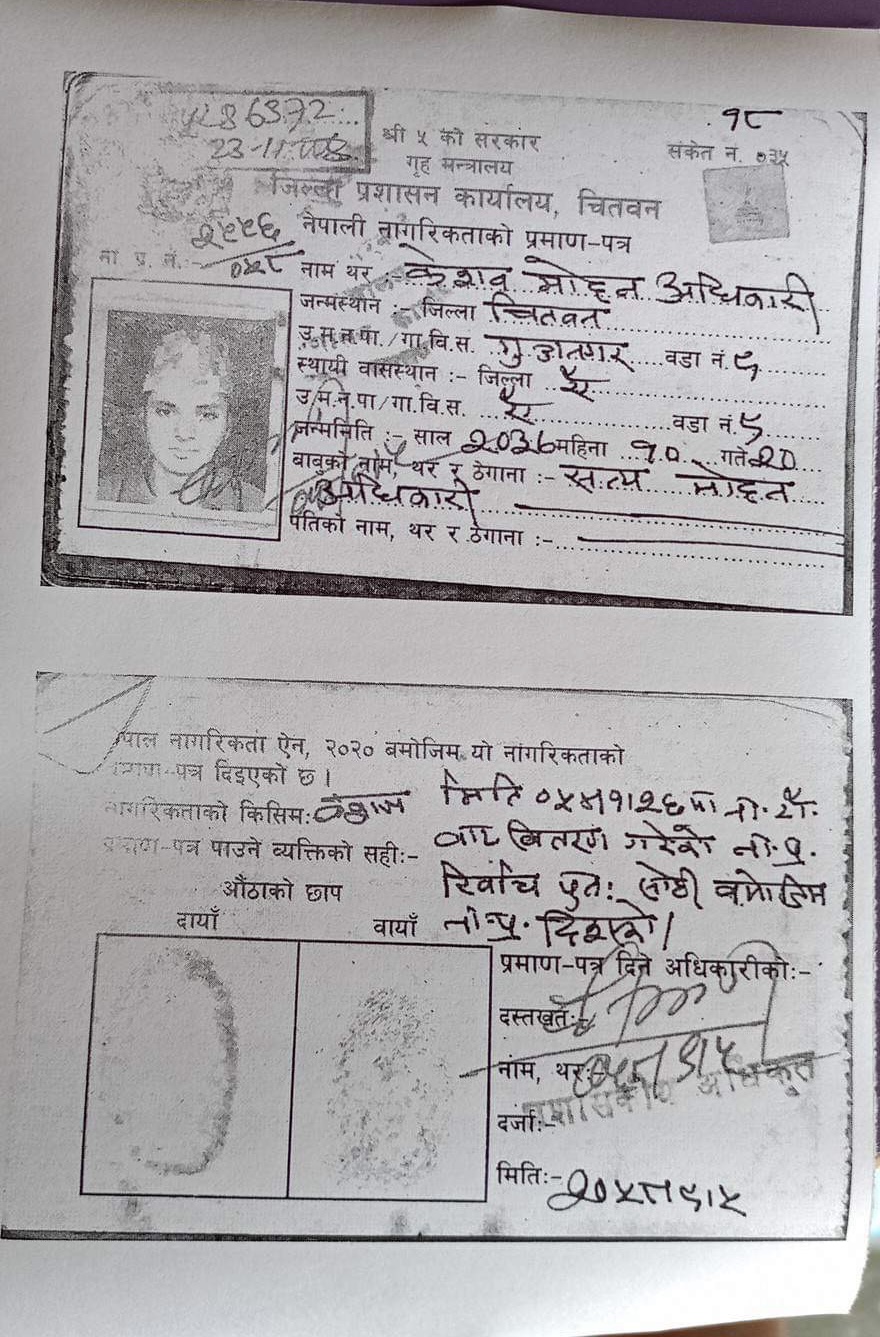 १८
23-11-
श्री ५ को सरकार
गृह मन्त्रालय
संकेत नं. ०३५
जिल्ला प्रशासन कार्यालय, चितवन
नेपाली नागरिकताको प्रमाण-पत्र
ना. प्र. नं.
नाम थर :- केशव मोहन अधिकारी
जन्मस्थान :- जिल्ला चितवन
उ.म.न.पा./गा.वि.स. गुञ्जनगर वडा नं. ५
स्थायी वासस्थान :- जिल्ला ऐ
उ.म.न.पा/गा.वि.स. ऐ वडा नं. ५
जन्ममिति :- साल २०३६ महिना १० गते २०
बाबुको नाम, थर र ठेगाना :- सत्य मोहन
अधिकारी
पतिको नाम, थर र ठेगाना :-
नेपाल नागरिकता ऐन, २०२० बमोजिम यो नागरिकताको
प्रमाण-पत्र दिइएको छ।
नागरिकताको किसिम: वंशज
प्रमाण-पत्र पाउने व्यक्तिको सही:-
मिति
बाट वितरण गरेको ना.प्र.
पुन: सोही बमोजिम
ना.प्र. दिइएको।
औंठाको छाप
दायाँ वायाँ
प्रमाण-पत्र दिने अधिकारीको:-
दस्तखत:-
नाम, थर:-
प्रशासकीय अधिकृत
दर्जा:-
मिति:- २०५८।९।५